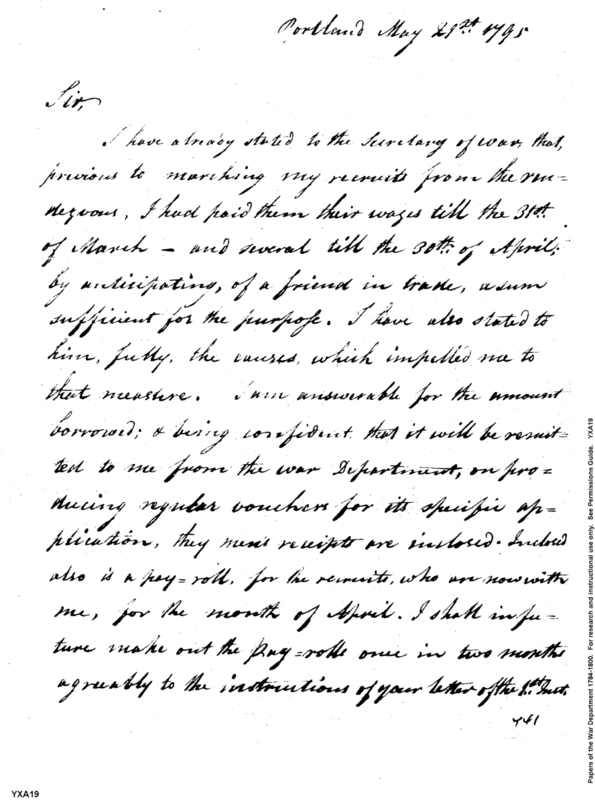 Portland May 21st. 1795
Sir,
I have already stated to the Secretary of war, that,
previous to marching my recruits from the ren=
dezvous, I had paid them their wages till the 31st.
of March – and several till the 30th. of April;
by anticipating, of a friend in trade, a sum
sufficient for the purpose. I have also stated to
him, fully, the causes, which impelled me to
that measure. I am answerable for the amount
borrowed; & being confident that it will be remit=
ted to me from the war Department, on pro=
ducing regular vouchers for its specific ap=
plication, they mens receipts are inclosed. Inclosed
also is a pay=roll, for the recruits, who are now with
me, for the month of April. I shall in fu=
ture make out the Pay=rolls once in two months
agreeably to the instructions of your letter of the 1st. Inst.
441
YXA19
Papers of the War Department 1784-1800. For research and instructional use only. See Permissions Guide. YXA19